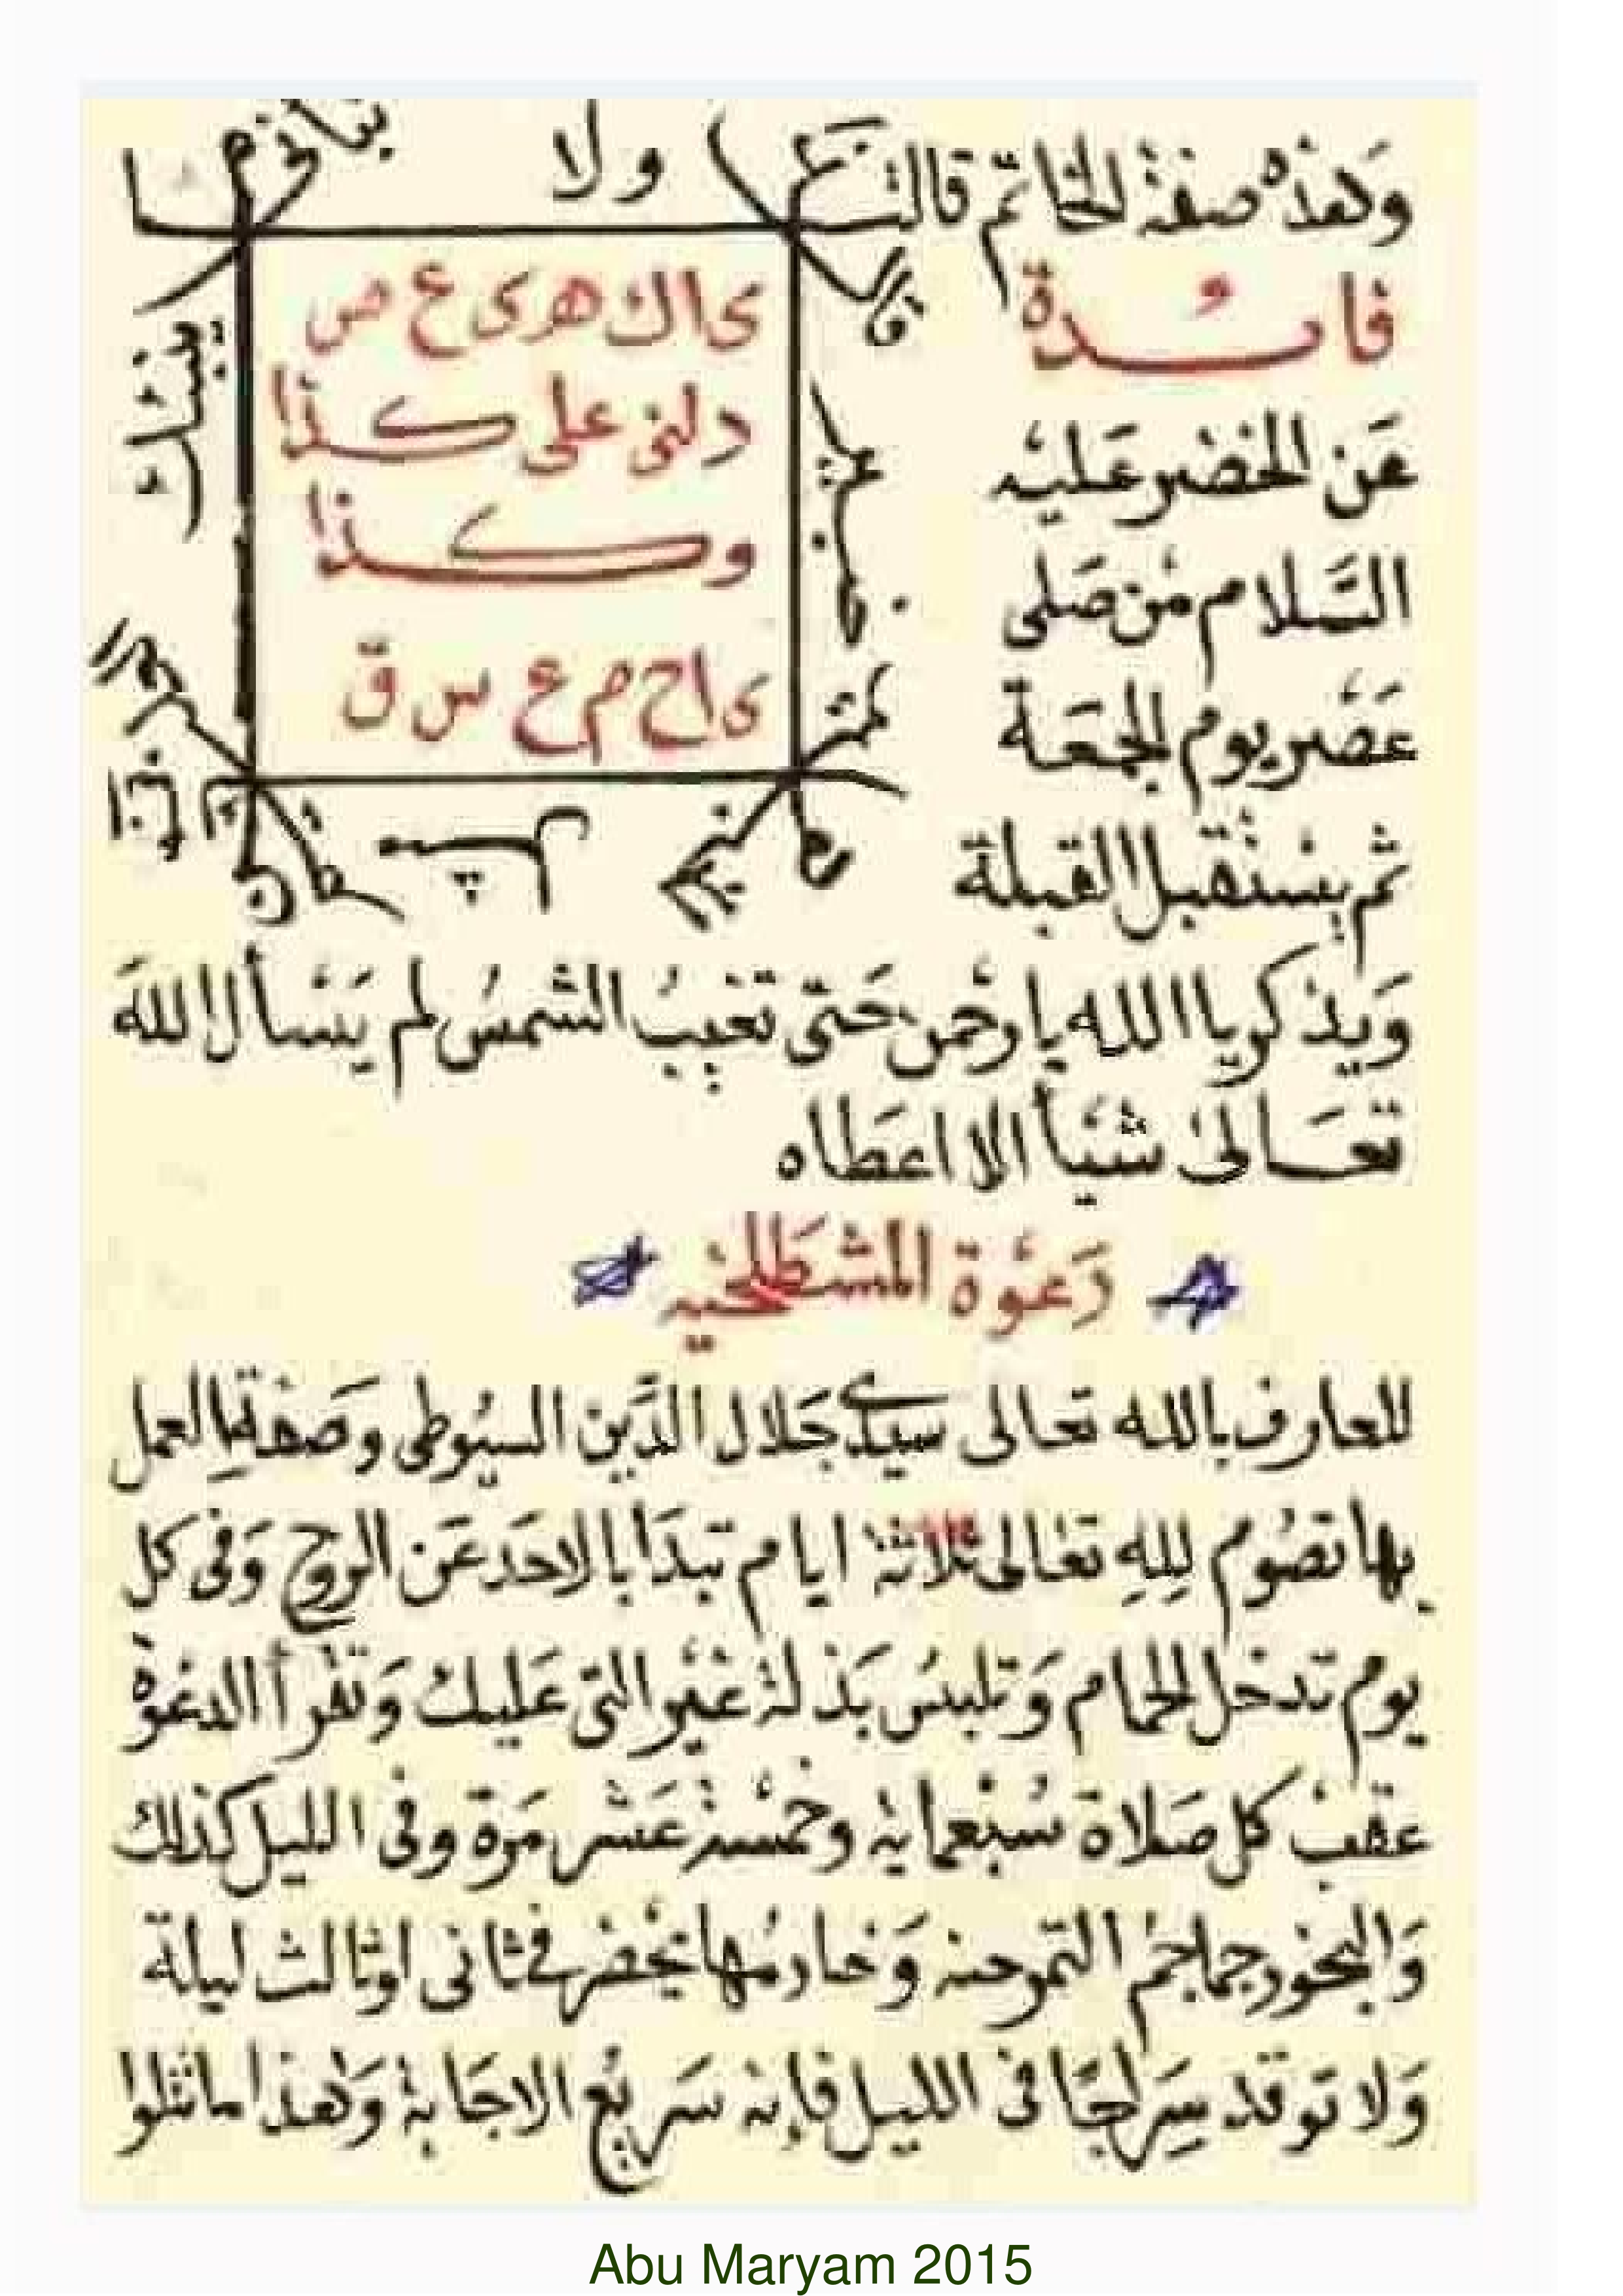 وَهذه صفة الخاتم
فائدة
عَن الخضر عَليه
السَّلام من صَلى
عَصْر يوم الجمعَة
ثم يستقبل القبلة
وَيذكر يا الله يا رحمن حَتى تغيبُ الشمسُ لم يَسأل اللهَ
تعَالى شيأ الا اعطاه
ى ا ك ه ى ع ص
دلنى على كذا
وكذا
ى ا ح م ع س ق
ولا
دَعوة
للعارف بالله تعالى سيدى جَلال الدَّين السيُوطى وصَفة العمل
بها تصُوم لِلهِ تعَالى ثلاثة ايام تبدَأ بالاحَد عَن الروح وَفى كل
يوم تدخل الحمام وَتلبسُ بَذلة غَير التى عَليك وَتقرأ الدعوة
عقب كل صَلاة سبعماية وخمسة عَشر مَرة وفى الليل كذلك
وَالبخور جماجم وَخادمُها يحضر فى ثانى او ثالث ليلة
وَلا توقد سِراجًا فى الليل فإنه سَريع الاجَابة وَهذا ما تتلوا
Abu Maryam 2015